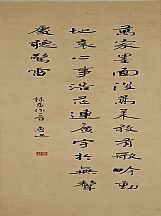 萬家墨面沒蒿萊敢有歌吟動
地哀心事浩茫連廣宇於無聲
處聽驚雷